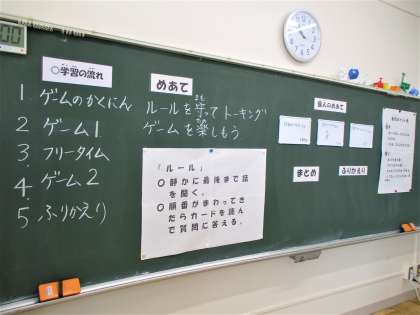 ○学習の流れ
1 ゲームのかくにん
2 ゲーム1
3. フリータイム
4. ゲーム2
5 ふりかえり
めあて
ルールを守ってトーキング
ゲームを楽しもう
「ルール」
○静かに最後まで話
を聞く。
○順番がまわってき
たらカードを読ん
で質問に答える。
個人のめあて
まとめ
ふりかえり